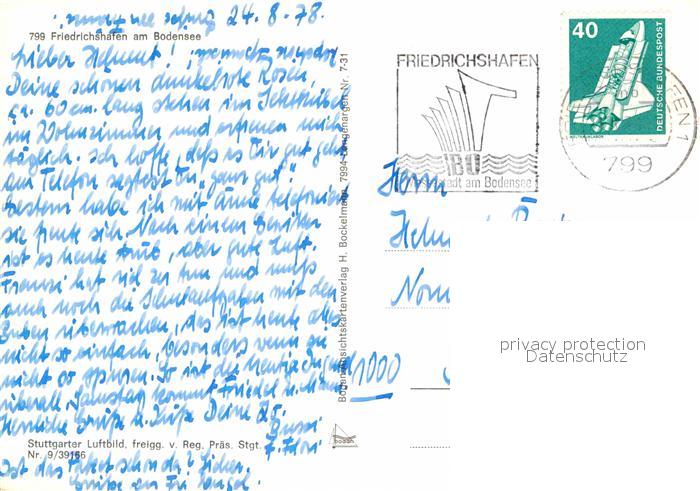 24.8.78.
799 Friedrichshafen am Bodensee
Lieber Helmut!
Deine schönen dunkelroten Rosen,
ca. 60 cm. lang stehen im
im Wohnzimmer und erfreuen mich
täglich. Ich hoffe, daß es Dir gut geht
am Telefon sagtest Du „ganz gut“.
Gestern habe ich mit Änne telefoniert
sie freute sich. Nach einem Gewitter
ist es heute trüb, aber gute Luft.
hat viel zu tun und muß
auch noch die Schulaufgaben mit den
Buben überwachen, das ist heute alles
nicht so einfach, besonders wenn sie
nicht so spuren. So ist die heutige Jugend
überall. Samstag kommt Friedel u.
Herzliche Grüße u. Küße Deine
Bussi
Stuttgarter Luftbild, freigg. v. Reg. Präs. Stgt.
Nr. 9/39166
Ist das Paket schon da?
Grüße an Frl.
Bodan-Ansichtskartenverlag H. Bockelmann, 7994 Langenargen, Nr. 7-31
bodan
FRIEDRICHSHAFEN
IBO
Stadt am Bodensee
40
DEUTSCHE BUNDESPOST
799
Herrn
1000
privacy protection
Datenschutz